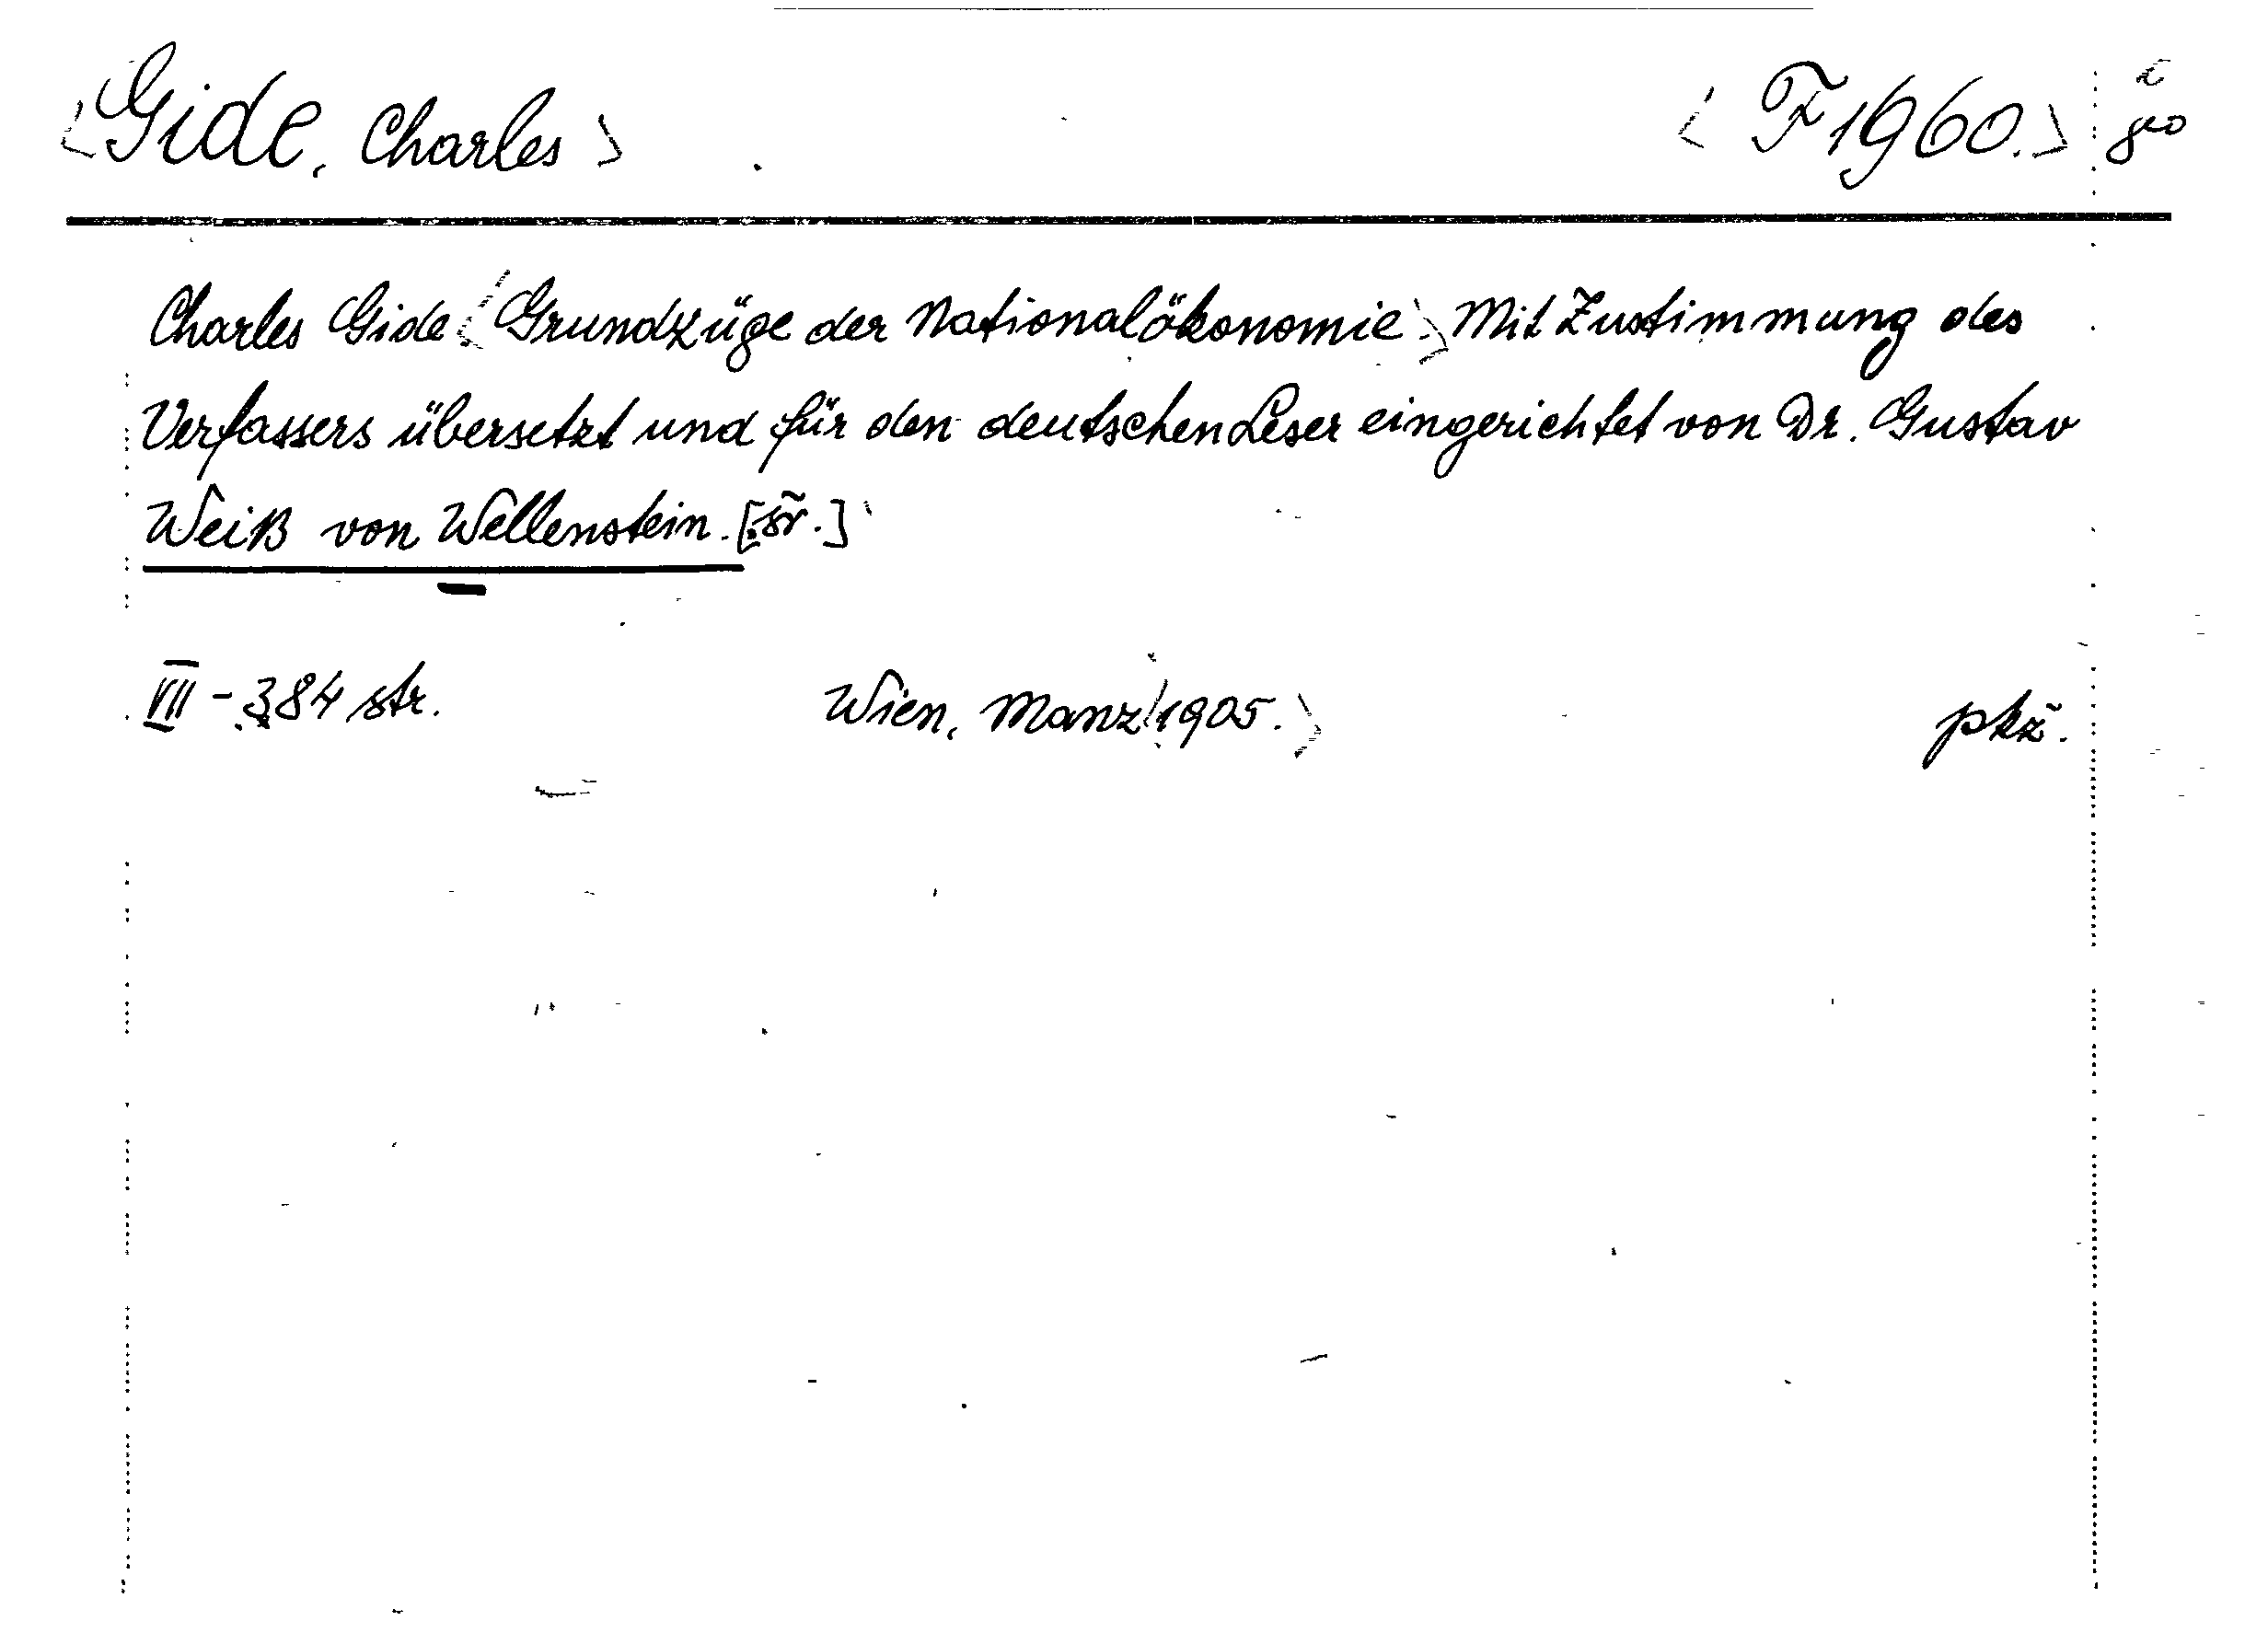 <Gide, Charles> <F 1960.>
Charles Gide <Grundzüge der Nationalökonomie.> Mit Zustimmung des
Verfassers übersetzt und für den deutschen Leser eingerichtet von Dr. Gustav
Weiß von Wellenstein. [šr.]
VII - 384 str. Wien, Manz <1905.> pkž.